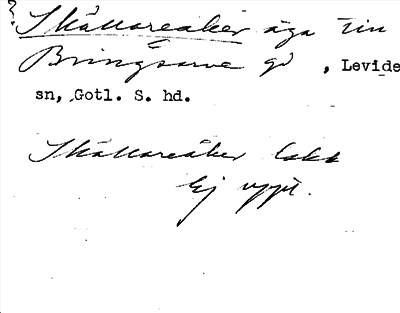 ? Skällareåker äga till
Bringsarve gd, Levide
sn, Gotl. S. hd.
Skällareåker
Ej uppt.